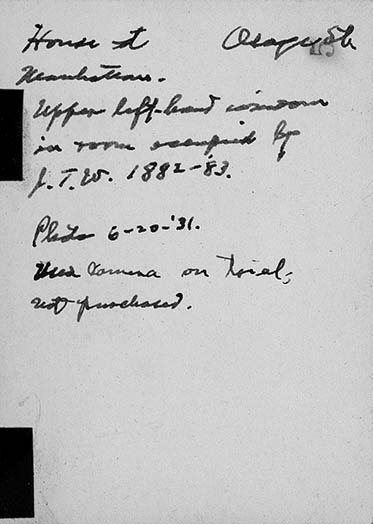 House at Osage & 5th
Manhattan.
Upper left-hand window
in room occupied by
J.T.W. 1882-'83.
Photo 6-20-'31.
camera on trial,
not purchased.